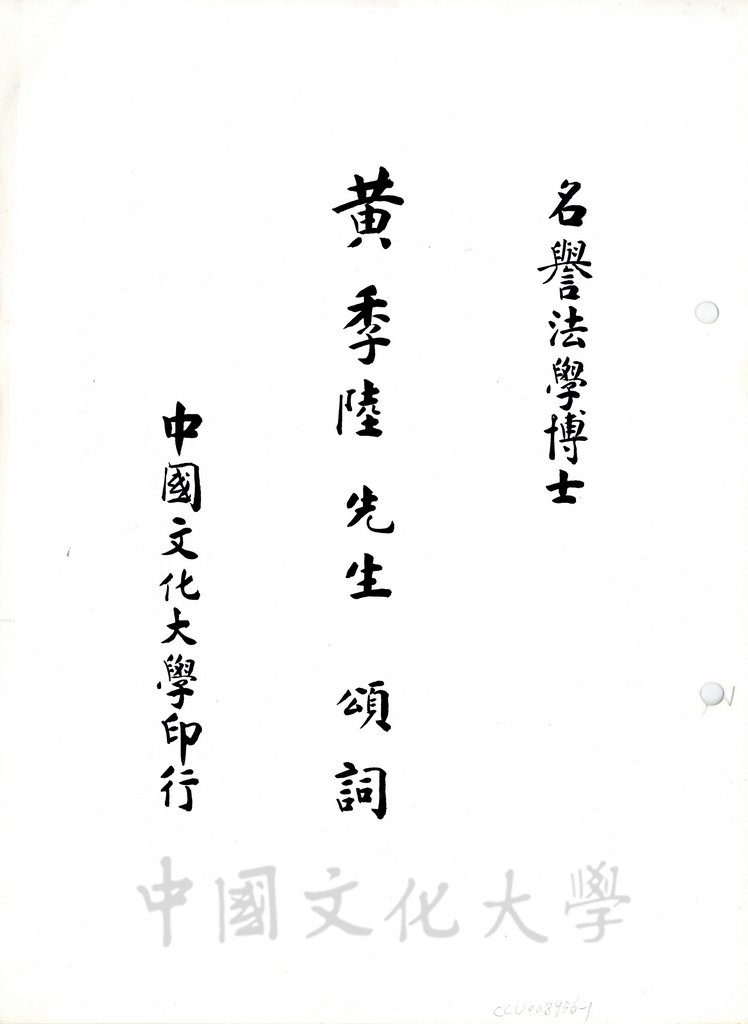 名譽法學博士
黃季陸先生頌詞
中國文化大學印行
中國文化大學
CCU008936-1